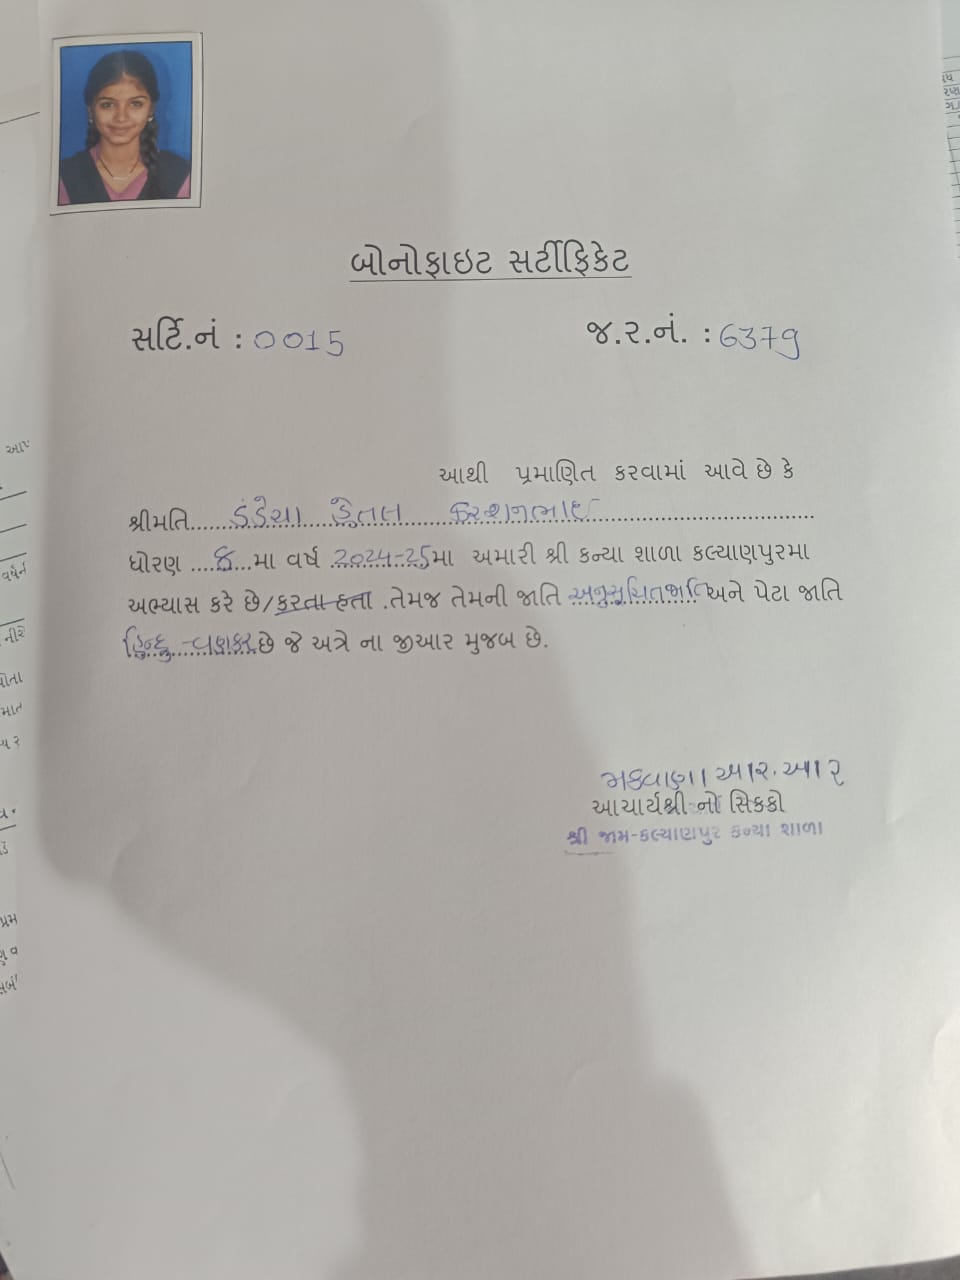 બોનોફાઇટ સર્ટીફિકેટ
સર્ટિ.નં : 0015
જ.ર.નં. : 6379
આથી પ્રમાણિત કરવામાં આવે છે કે
શ્રીમતિ...... ડંડેચા હેતલ કરશનભાઈ ......
ધોરણ ....૪...મા વર્ષ 2024-25મા અમારી શ્રી કન્યા શાળા કલ્યાણપુરમા
અભ્યાસ કરે છે/કરતા હતા .તેમજ તેમની જાતિ અનુસુચિતજાતિ અને પેટા જાતિ
હિન્દુ-વણકર છે જે અત્રે ના જીઆર મુજબ છે.
મકવાણા આર.આર
આચાર્યશ્રી નો સિકકો
શ્રી જામ-કલ્યાણપુર કન્યા શાળા